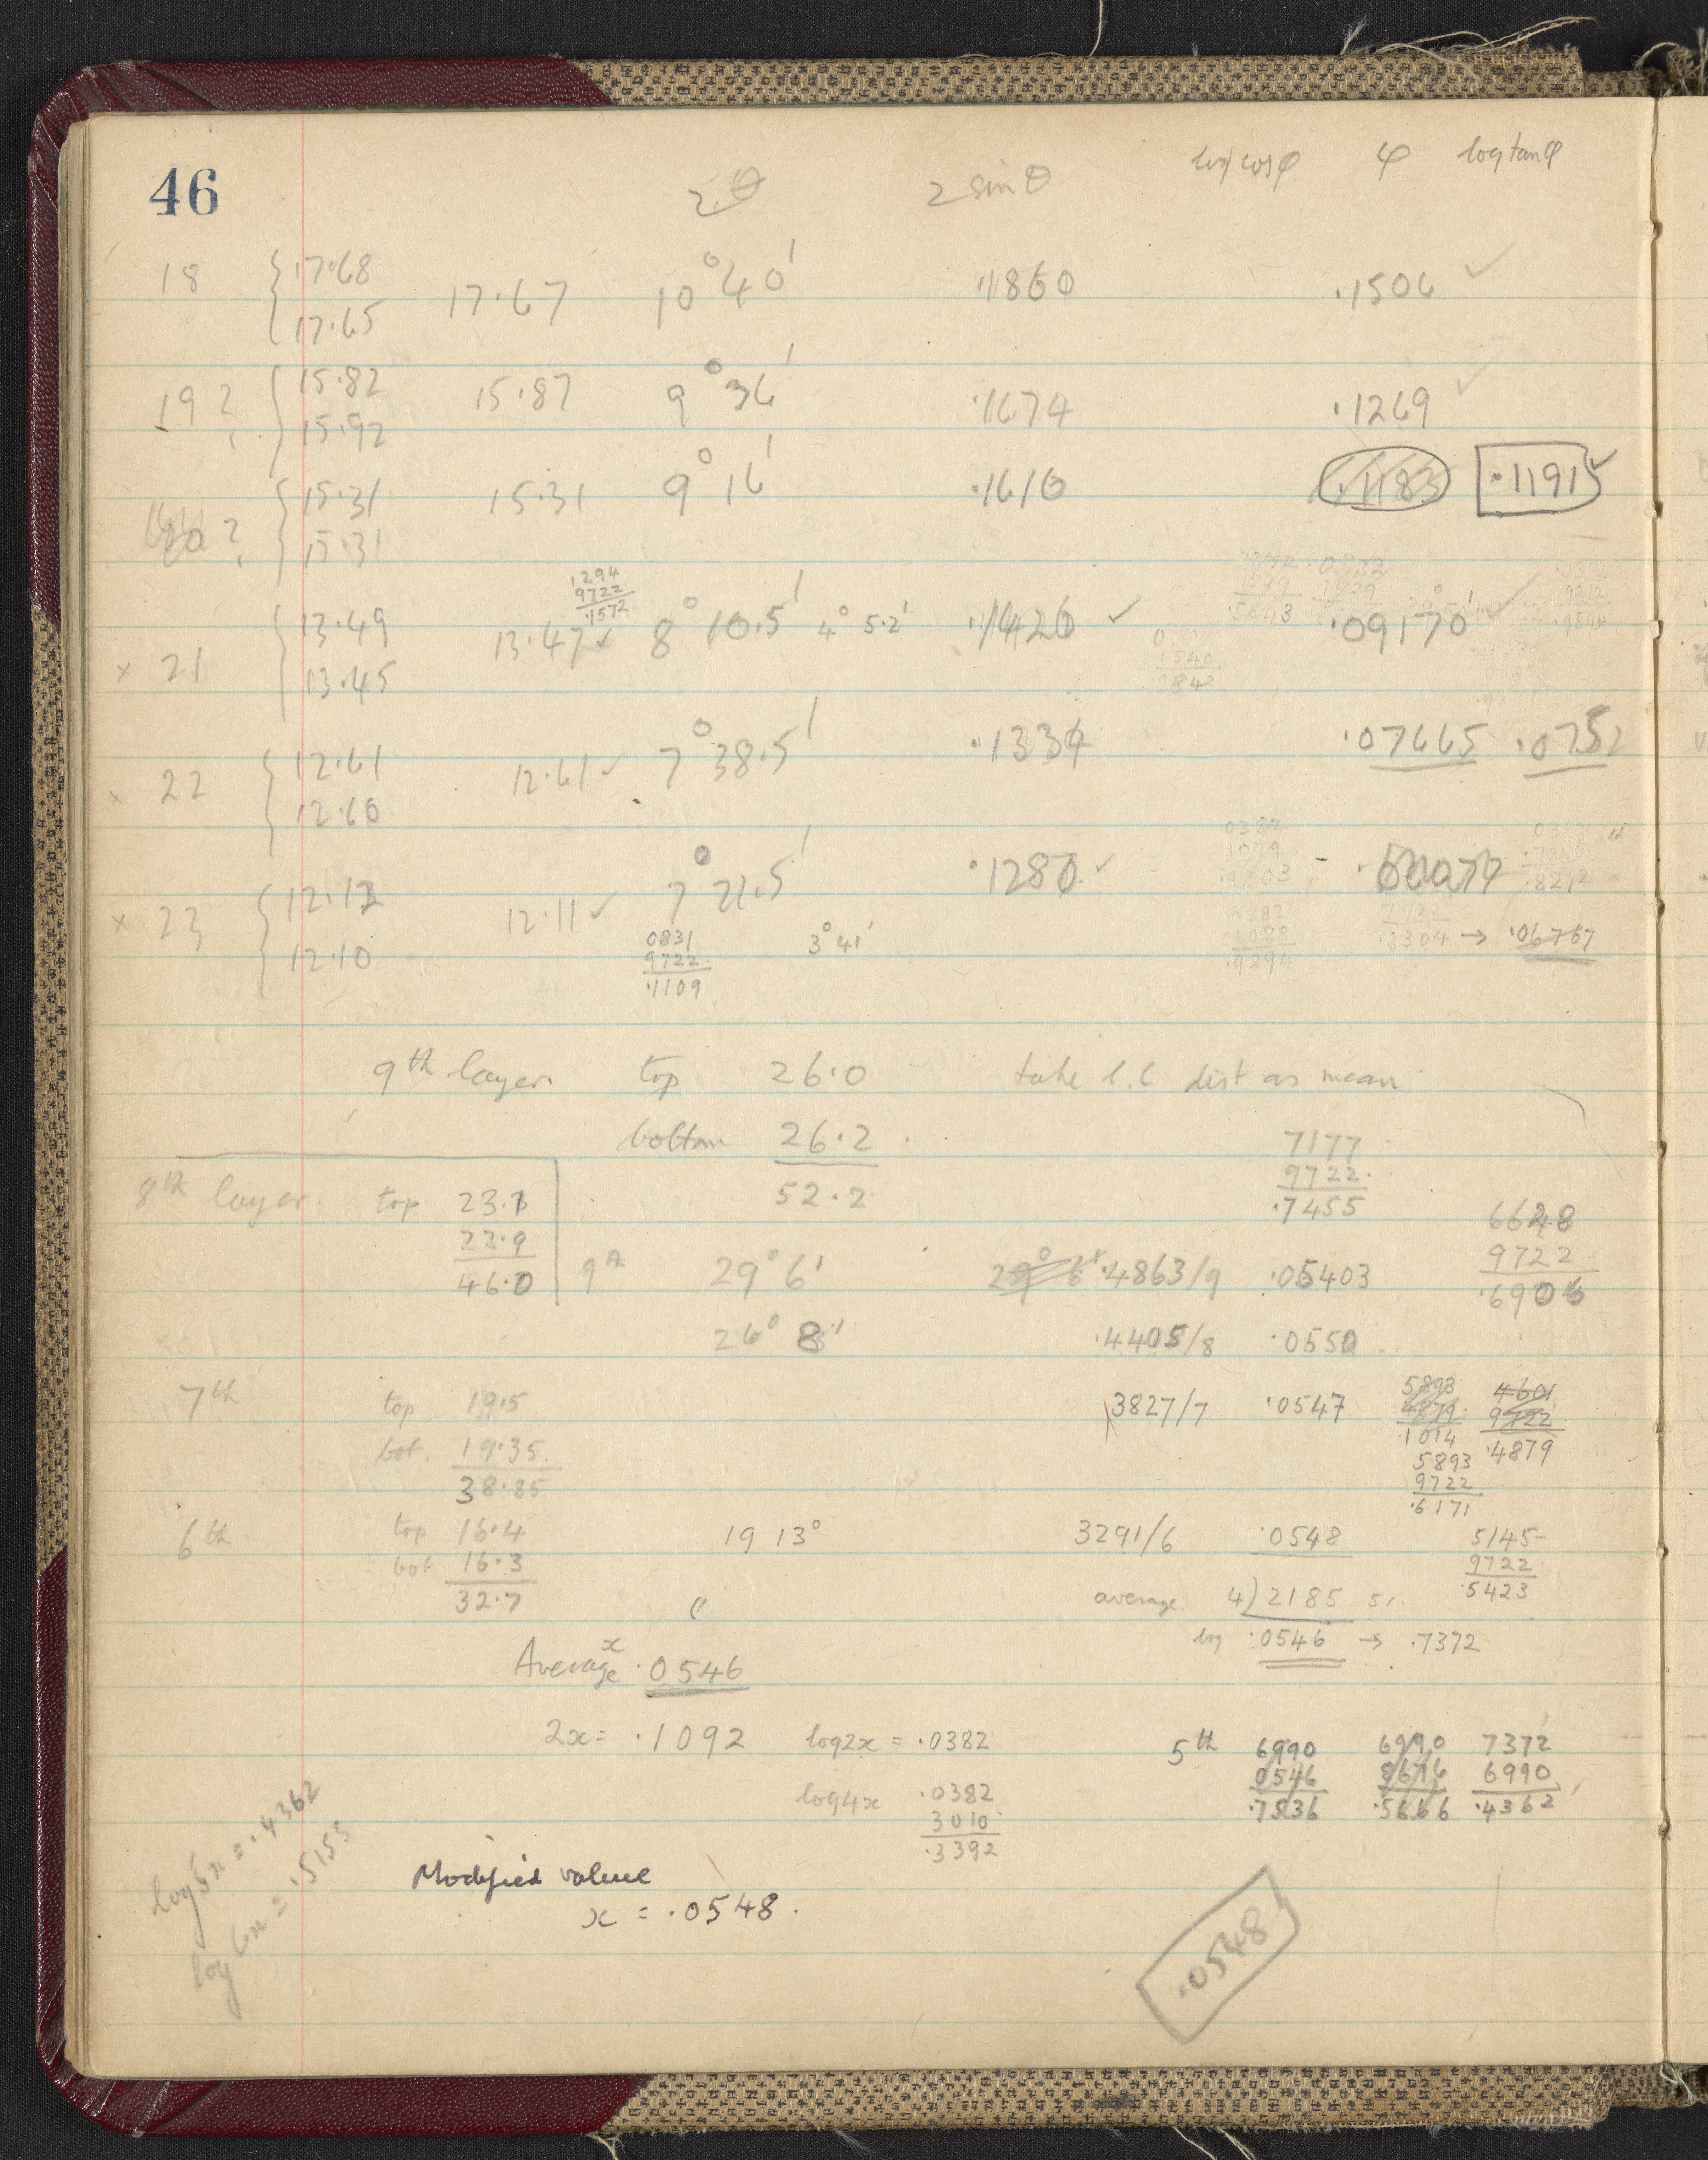 46
2θ 2 sin θ log cos φ φ log tan φ
18 { 17.68 17.67 10° 40' .1860 .1506 ✓
17.65
19? { 15.82 15.87 9° 36' .1674 .1269 ✓
15.92
20? { 15.31 15.31 9° 16' .1616 .1183 .1191 ✓
15.31
1294
9722
.1572
× 21 { 13.49 13.47 ✓ 8° 10.5' 4° 5.2' .1426 ✓ .09170 ✓
13.45
× 22 { 12.61 12.61 ✓ 7° 38.5' .1334 .07665 .0752
12.60
× 23 { 12.12 12.11 ✓ 7° 21.5' .1280 ✓
12.10 3° 41' .3304 → .06767
0831
9722
.1109
9th layer. top 26.0 take l.c dist as mean
bottom 26.2
52.2
7177
9722
.7455
8th layer. top 23.1
22.9
46.0
9th 29° 6' 29° 6' .4863/9 .05403
6628
9722
.6906
26° 8' .4405/8 .0550
7th top 19.5 3827/7 .0547
bot. 19.35
38.85
5893
4879
.1014
4601
9722
.4879
5893
9722
.6171
6th top 16.4 19 13° 3291/6 .0548
bot 16.3
32.7
5145
9722
.5423
average 4) 2185
log .0546 → .7372
Average x .0546
2x = .1092 log2x = .0382
log4x .0382
3010
.3392
5th 6990 6990 7372
0546 8676 6990
.7536 .5666 .4362
log5x = .4362
log6x = .5155
Modified value
x = .0548.
.0548